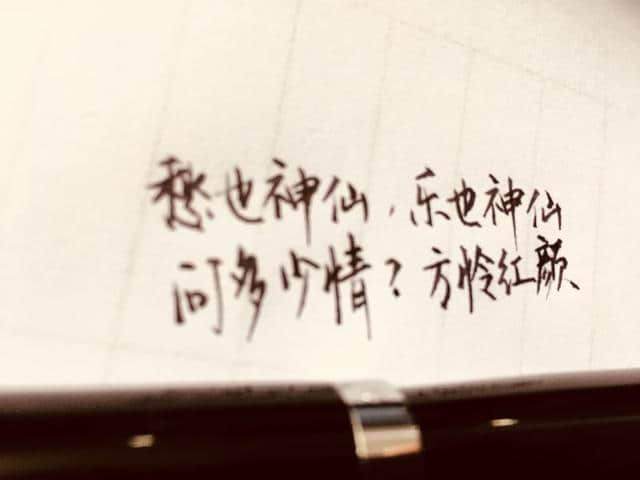 愁也神仙，乐也神仙
问多少情？方怜红颜